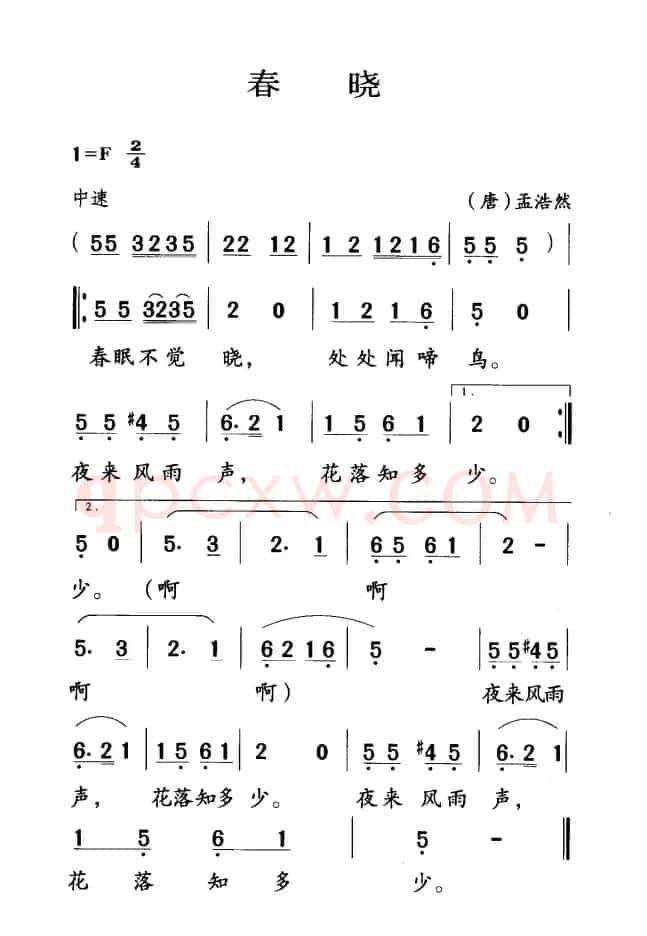 春 晓
1=F 2/4
中速 （唐）孟浩然
( 55 3235 | 22 12 | 1 2 1216 | 5 5 5 ) |
‖: 5 5 3235 | 2 0 | 1 2 1 6 | 5 0 |
春眠不觉 晓， 处处闻啼 鸟。
1.
5 5 #4 5 | 6· 2 1 | 1 5 6 1 | 2 0 :‖
夜来风雨 声， 花落知多 少。
qpcxw.COM
2.
5 0 | 5· 3 | 2· 1 | 6 5 6 1 | 2 - |
少。（啊 啊
5· 3 | 2· 1 | 6 2 1 6 | 5 - | 5 5 #4 5 |
啊 啊） 夜来风雨
6· 2 1 | 1 5 6 1 | 2 0 | 5 5 #4 5 | 6· 2 1 |
声， 花落知多 少。 夜来 风雨 声，
1 5 6 1 | 5 - ‖
花 落 知 多 少。